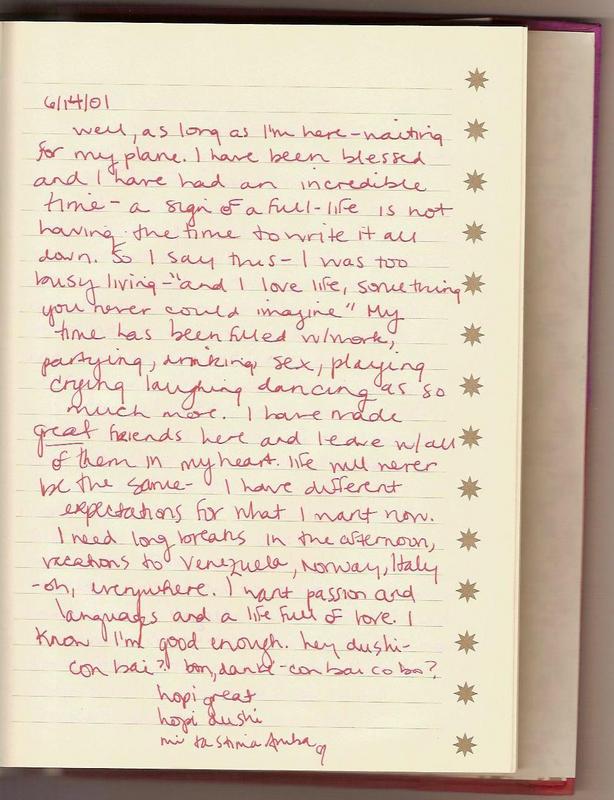 6/14/01
well, as long as I'm here - waiting
for my plane. I have been blessed
and I have had an incredible
time - a sign of a full-life is not
having the time to write it all
down. So I say this - I was too
busy living - "and I love life, something
you never could imagine" My
time has been filled w/work,
partying, drinking, sex, playing
crying laughing dancing as so
much more. I have made
great friends here and leave w/all
of them in my heart. life will never
be the same - I have different
expectations for what I want now.
I need long breaks in the afternoon,
vacations to Venezuela, Norway, Italy
- oh, everywhere. I want passion and
languages and a life full of love. I
know I'm good enough. hey dushi -
con bai? bon, danki - con bai co bo?
hopi great
hopi dushi
mi ta stima Aruba